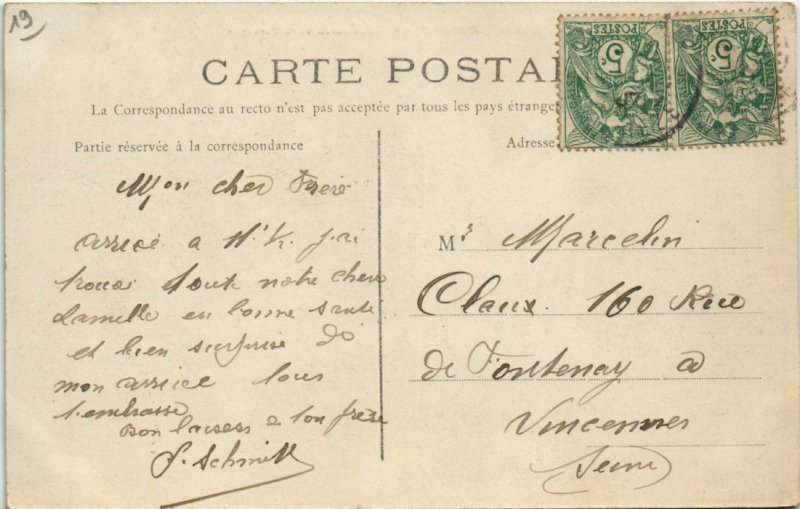 19
POSTES
5c
POSTES
5c
CARTE POSTAL
La Correspondance au recto n'est pas acceptée par tous les pays étrange
Partie réservée à la correspondance
Adresse
Mon cher Frère
arrivé a 11h ½ j'ai
trouvé toute notre chere
famille en bonne santé
et bien surprise de
mon arrivée tous
t'embrasse
Bon baisers a ton frère
Schmitt
Mr Marcelin
Claux 160 Rue
de Fontenay a
Vincennes
Seine